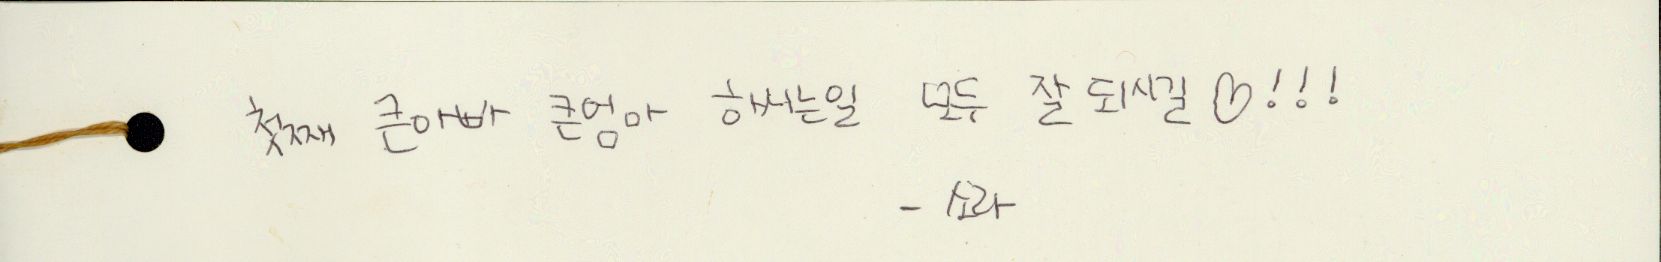 첫째 큰아빠 큰엄마 하시는일 모두 잘 되시길 ♡!!!
- 소라